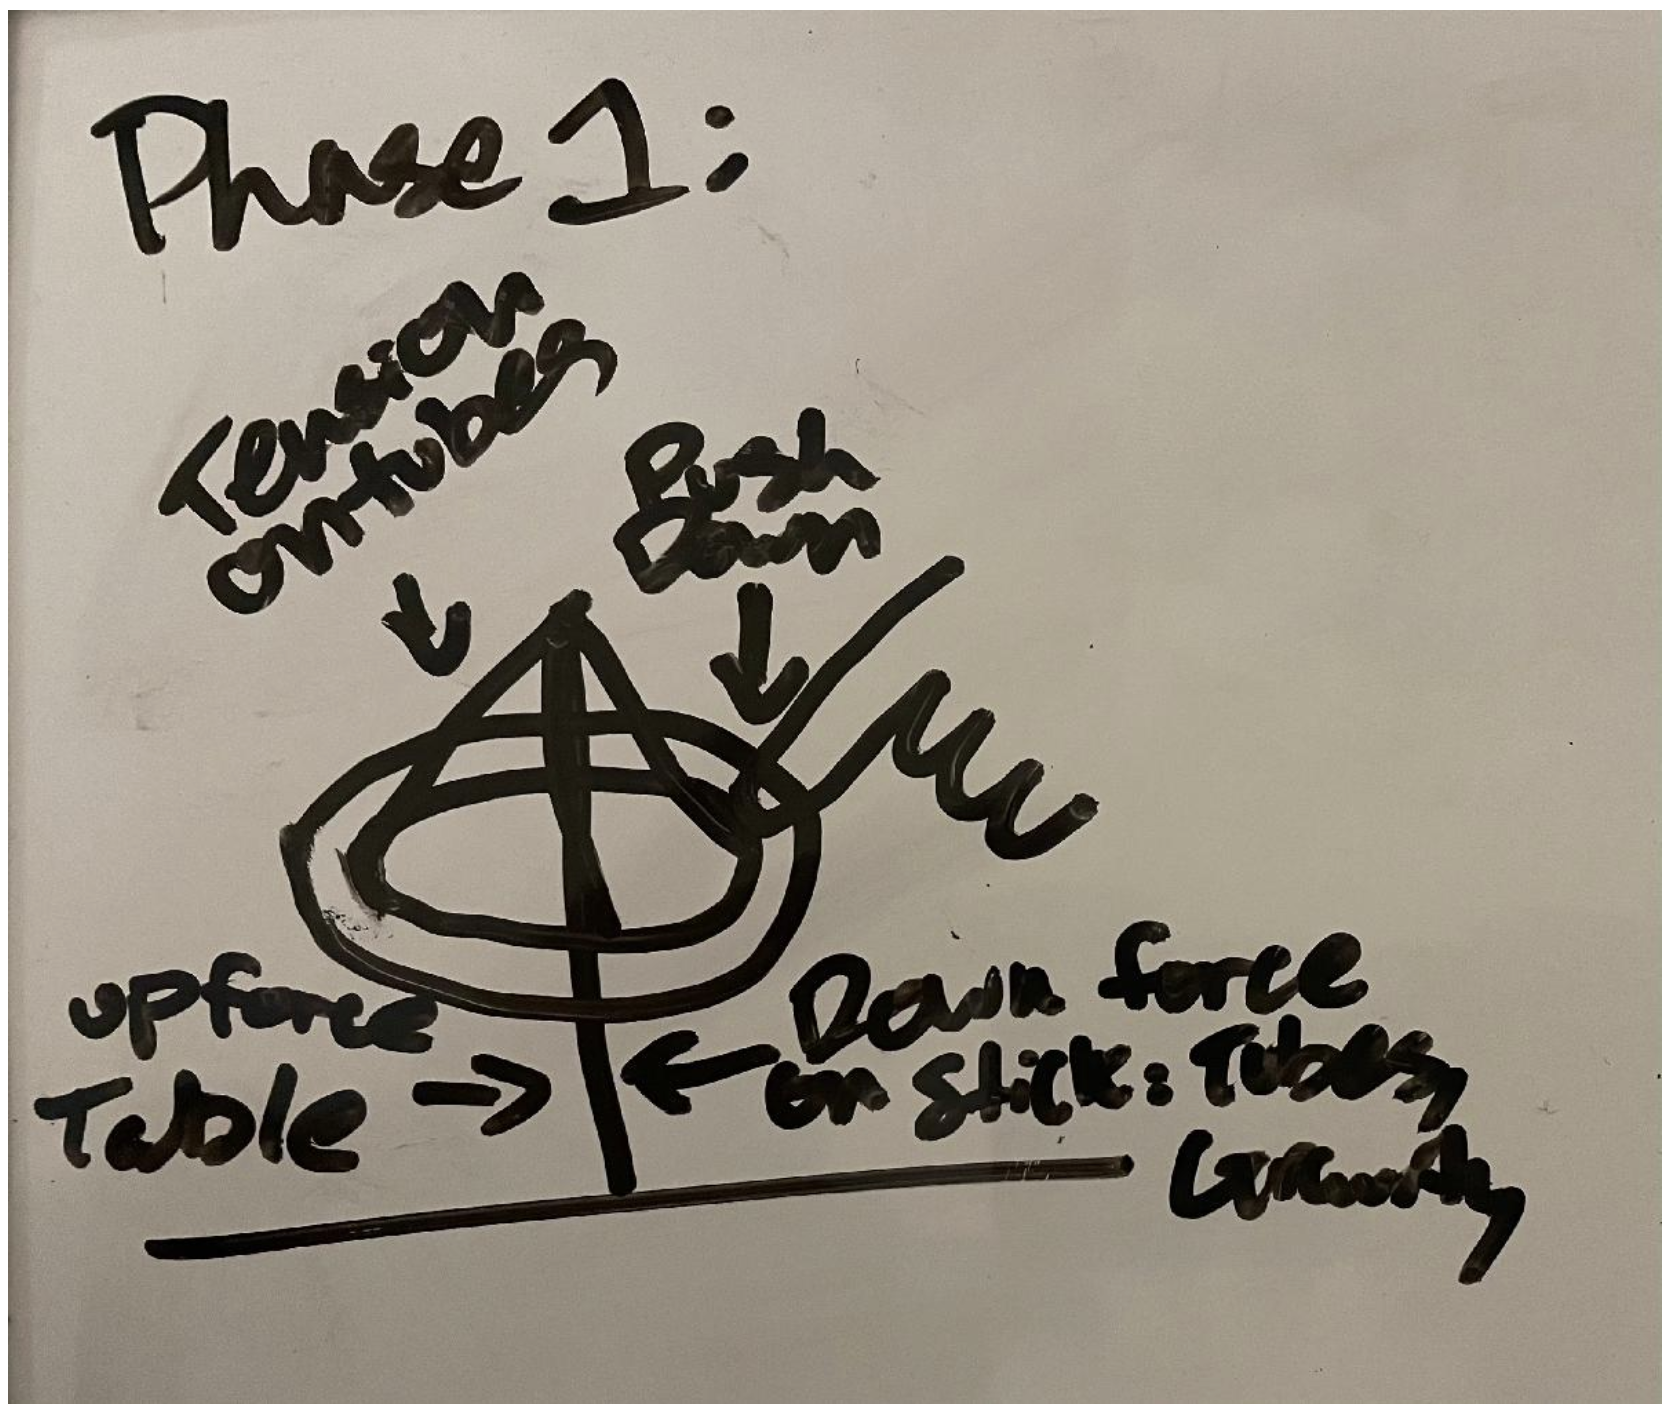 Phase 1:
Tension
on tubes
Push
Down
up force
Table
Down force
on stick: Tubes,
Gravity